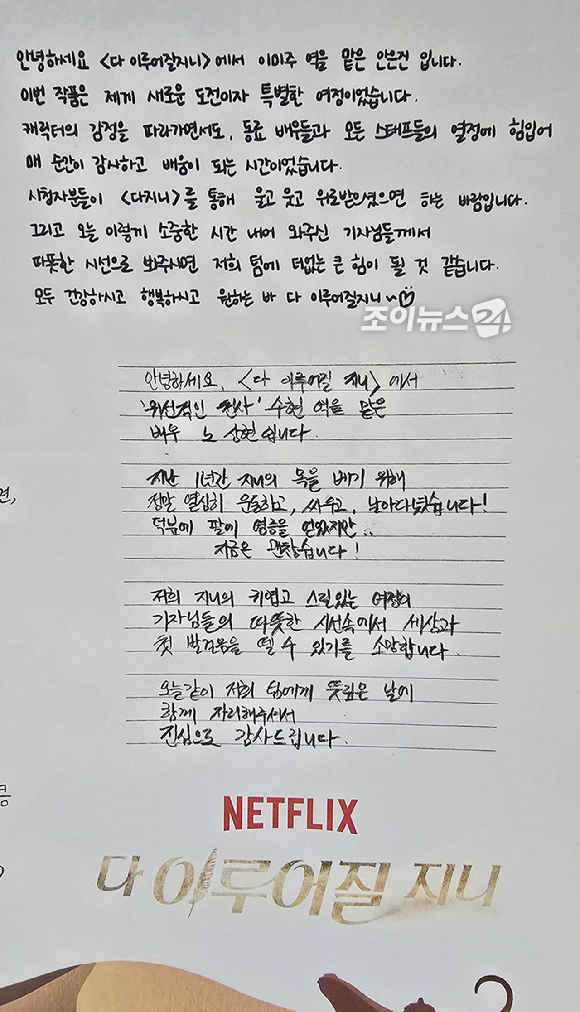 안녕하세요 <다 이루어질지니> 에서 이미주 역을 맡은 안은진 입니다.
이번 작품은 제게 새로운 도전이자 특별한 여정이었습니다.
캐릭터의 감정을 따라가면서도, 동료 배우들과 모든 스태프들의 열정에 힘입어
매 순간이 감사하고 배움이 되는 시간이었습니다.
시청자분들이 <다지니>를 통해 울고 웃고 위로받으셨으면 하는 바람입니다.
그리고 오늘 이렇게 소중한 시간 내어 와주신 기자님들께서
따뜻한 시선으로 봐주시면 저희 팀에 더없는 큰 힘이 될 것 같습니다.
모두 건강하시고 행복하시고 원하는 바 다 이루어질지니~♡
조이뉴스24
안녕하세요, <다 이루어질 지니> 에서
'위선적인 천사' 수현 역을 맡은
배우 노상현입니다.
지난 1년간 지니의 목을 베기 위해
정말 열심히 운동하고, 싸우고, 날아다녔습니다!
덕분에 팔에 염증을 얻었지만..
지금은 괜찮습니다!
저희 지니의 귀엽고 스릴있는 여정이
기자님들의 따뜻한 시선속에서 세상과
첫 발걸음을 뗄 수 있기를 소망합니다
오늘같이 저희 팀에게 뜻깊은 날에
함께 자리해주셔서
진심으로 감사드립니다.
NETFLIX
다 이루어질 지니